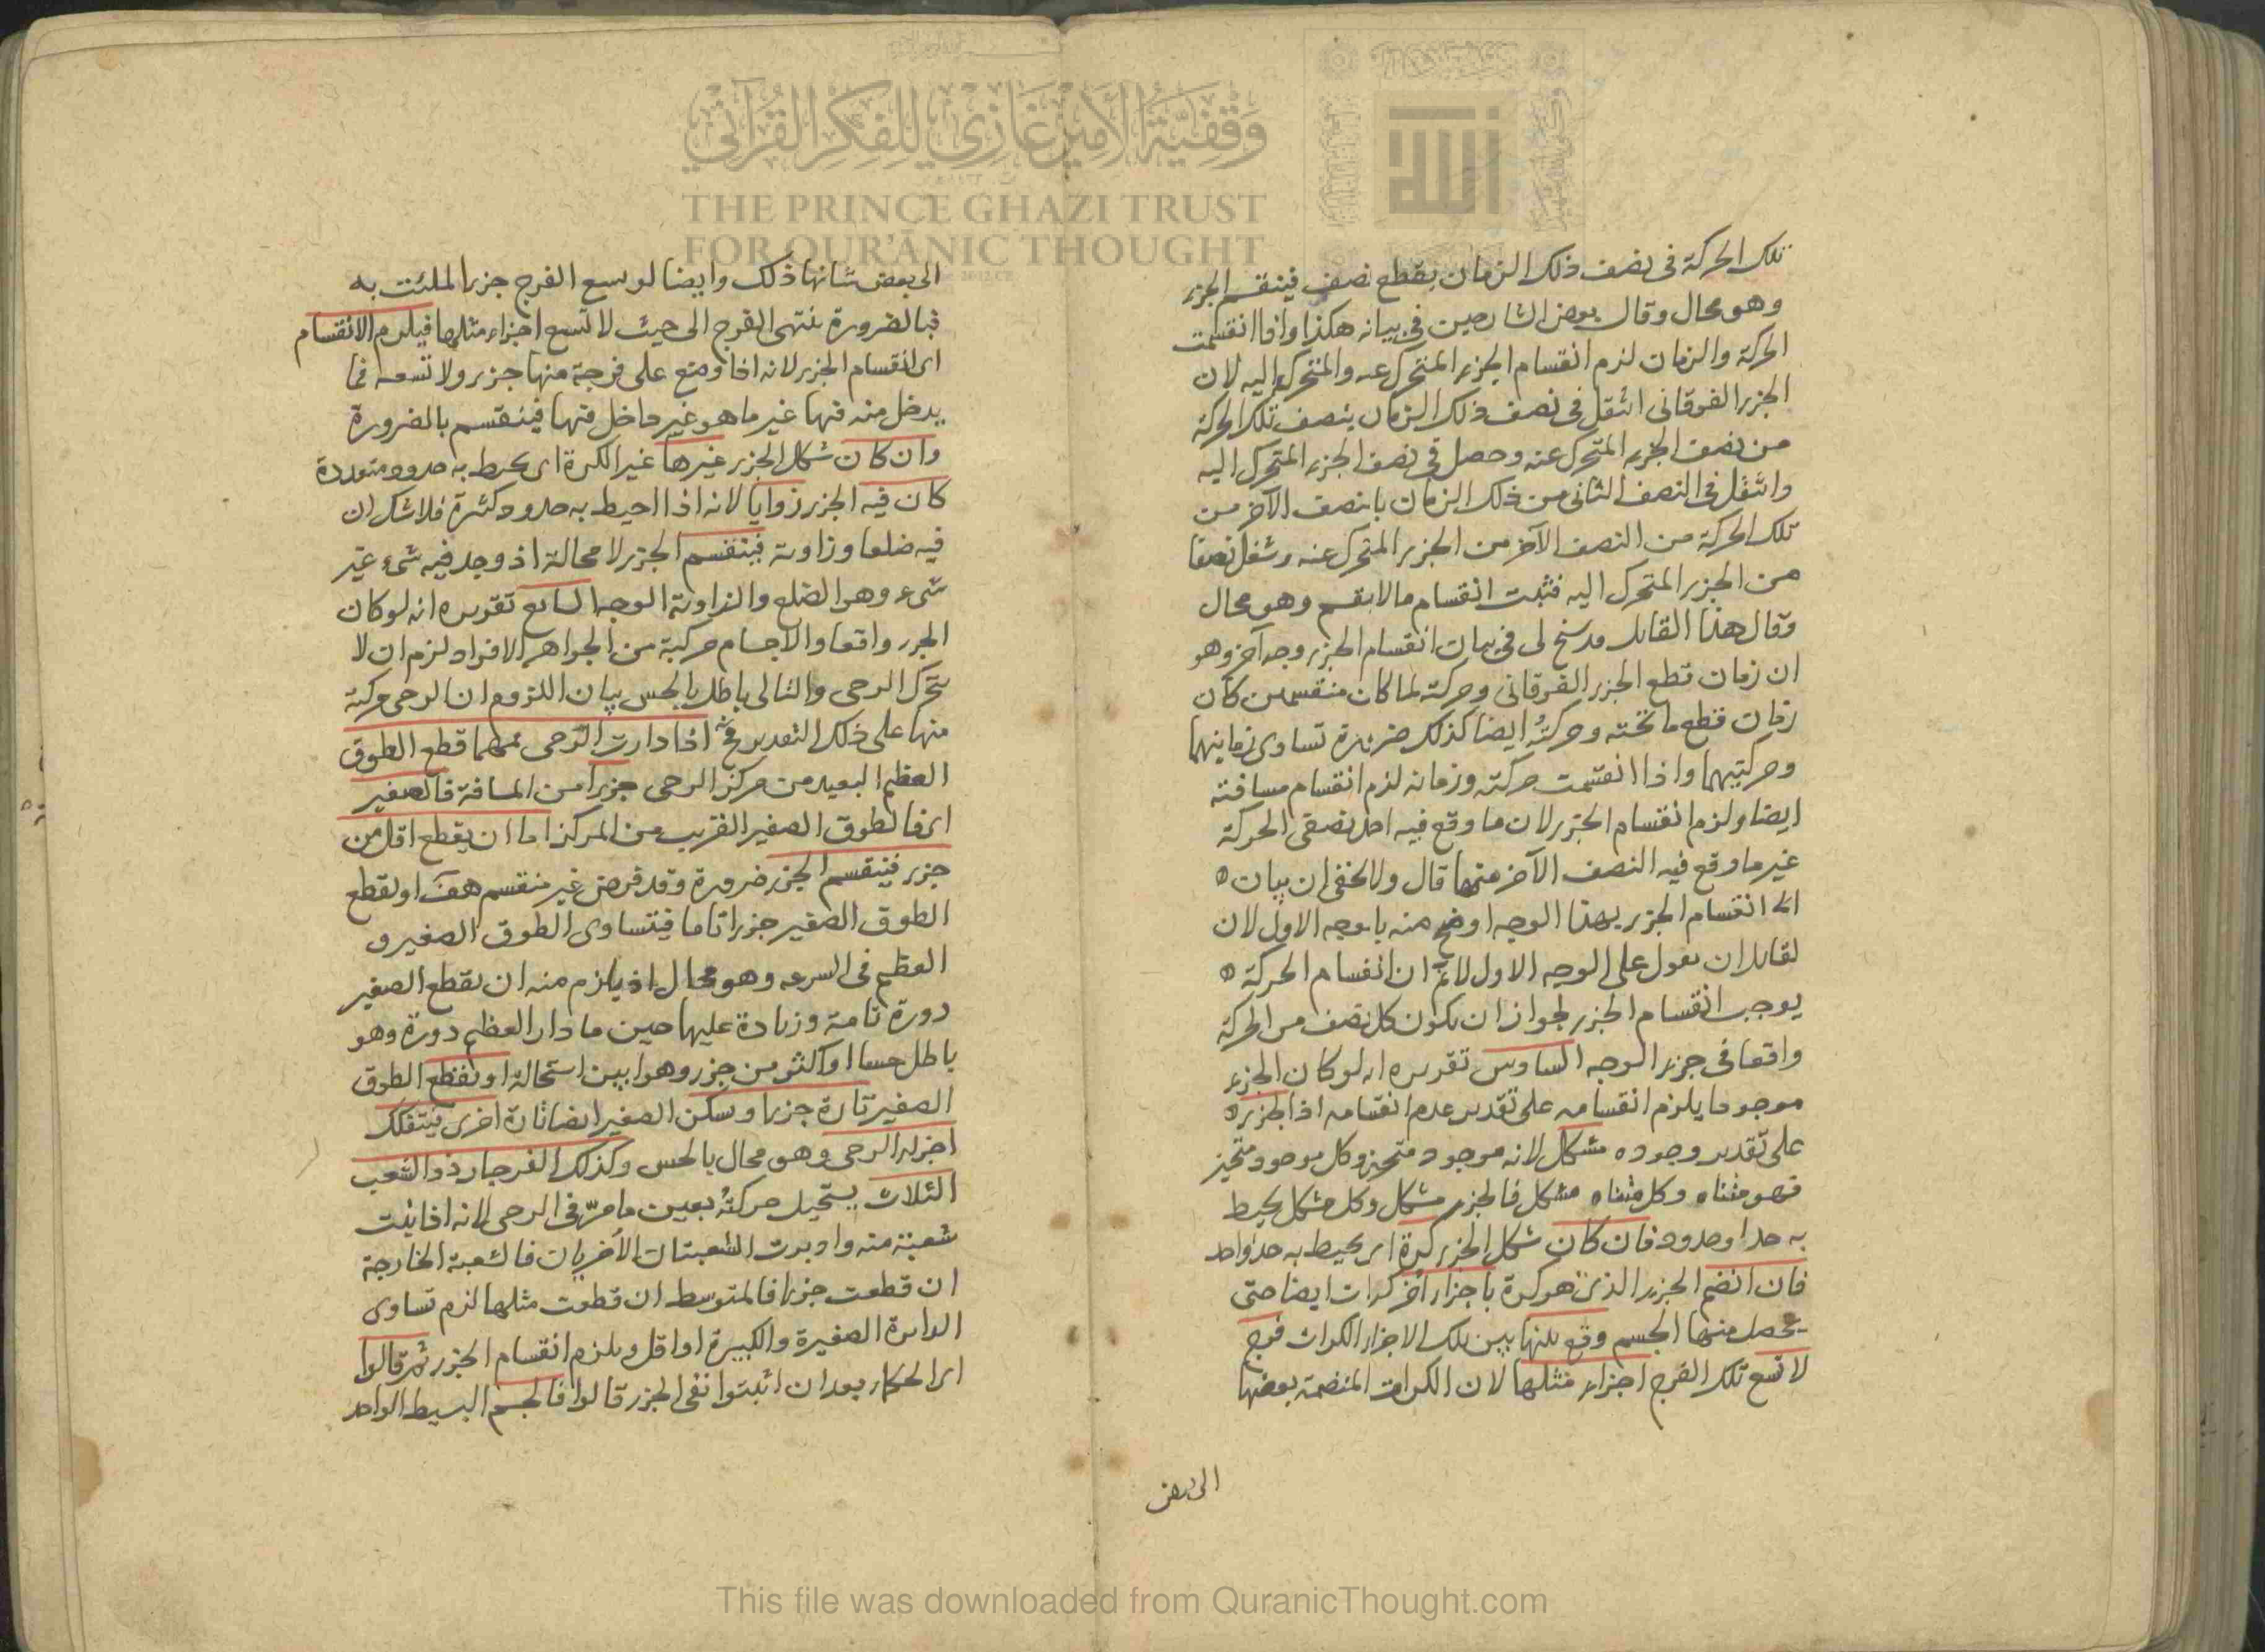 تلك الحركة فى نصف ذلك الزمان بقطع نصف فينقسم الجزء
وهو محال وقال بعض الشارحين فى بيانه هكذا واذا انقسمت
الحركة والزمان لزم انقسام الجزء المتحرك عنه والمتحرك اليه لان
الجزء الفوقانى انتقل فى نصف ذلك الزمان بنصف تلك الحركة
من نصف الجزء المتحرك عنه وحصل فى نصف الجزء المتحرك اليه
وانتقل فى النصف الثانى من ذلك الزمان بالنصف الآخر من
تلك الحركة من النصف الآخر من الجزء المتحرك عنه وشغل نصفا
من الجزء المتحرك اليه فثبت انقسام ما لا ينقسم وهو محال
وقال هذا القايل قد سنح لى فى بيان انقسام الجزء وجه آخر وهو
ان زمان قطع الجزء الفوقانى وحركته لما كان منقسمين كان
زمان قطع ما تحته وحركته ايضا كذلك ضرورة تساوى زمانيهما
وحركتيهما واذا انقسمت حركته وزمانه لزم انقسام مسافته
ايضا ولزم انقسام الجزء لان ما وقع فيه احد نصفى الحركة
غير ما وقع فيه النصف الآخر منها قال ولا يخفى ان بيان
انقسام الجزء بهذا الوجه اوضح منه بالوجه الاول لان
لقايل ان يقول على الوجه الاول لا نم ان انقسام الحركة
يوجب انقسام الجزء لجواز ان يكون كل نصف من الحركة
واقعا فى جزء الوجه السادس تقريره انه لو كان الجزء
موجودا يلزم انقسامه على تقدير عدم انقسامه اذ الجزء
على تقدير وجوده مشكل لانه موجود متحيز وكل موجود متحيز
فهو متناه وكل متناه مشكل فالجزء مشكل وكل مشكل يحيط
به حد او حدود فان كان شكل الجزء كرة اى يحيط به حد واحد
فان انضم الجزء الذى هو كرة باجزاء أخر كرات ايضا حتى
يحصل منها الجسم وقع بينها بين تلك الاجزاء الكرات فرج
لا تسع تلك الفرج اجزاء مثلها لان الكرات المنضمة بعضها
الى بعض
الى بعض شانها ذلك وايضا لو سع الفرج جزءا لملئت به
فبالضرورة ينتهى الفرج الى حيث لا تسع اجزاء مثلها فيلزم الانقسام
اى انقسام الجزء لانه اذا وضع على فرجة منها جزء ولا تسعه فما
يدخل منه فيها غير ما هو غير داخل فيها فينقسم بالضرورة
وان كان شكل الجزء غيرها غير الكرة اى يحيط به حدود متعددة
كان فيه الجزء زوايا لانه اذا احيط به حدود كثيرة فلا شك ان
فيه ضلعا وزاوية فينقسم الجزء لا محالة اذ وجد فيه شىء غير
شىء وهو الضلع والزاوية الوجه السابع تقريره انه لو كان
الجزء واقعا والاجسام مركبة من الجواهر الافراد لزم ان لا
يتحرك الرحى والتالى باطل بالحس بيان اللزوم ان الرحى مركبة
منها على ذلك التقدير فح اذا دارت الرحى فمهما قطع الطوق
العظيم البعيد من مركز الرحى جزءا من المسافة فالصغير
اى فالطوق الصغير القريب من المركز اما ان يقطع اقل من
جزء فينقسم الجزء ضرورة وقد فرض غير منقسم هف او يقطع
الطوق الصغير جزءا تاما فيتساوى الطوق الصغير و
العظيم فى السرعه وهو محال اذ يلزم منه ان يقطع الصغير
دورة تامة وزيادة عليها حين ما دار العظيم دورة وهو
باطل حسا او اكثر من جزء وهو ابين استحالة او يقطع الطوق
الصغير تارة جزءا ويسكن الصغير ايضا تارة اخرى فيتفكك
اجزاء الرحى وهو محال بالحس وكذلك الفرجار ذو الشعب
الثلاث يستحيل حركته بعين ما مر فى الرحى لانه اذا ثبت
شعبة منه وادبرت الشعبتان الأخريان فالشعبة الخارجة
ان قطعت جزءا فالمتوسط ان قطعت مثلها لزم تساوى
الدايرة الصغيرة والكبيرة او اقل ويلزم انقسام الجزء ثم قالوا
اى الحكماء بعد ان اثبتوا نفى الجزء قالوا فالجسم البسيط الواحد
وقفية الأمير غازي للفكر القرآني
THE PRINCE GHAZI TRUST
FOR QUR'ĀNIC THOUGHT
الله
This file was downloaded from QuranicThought.com